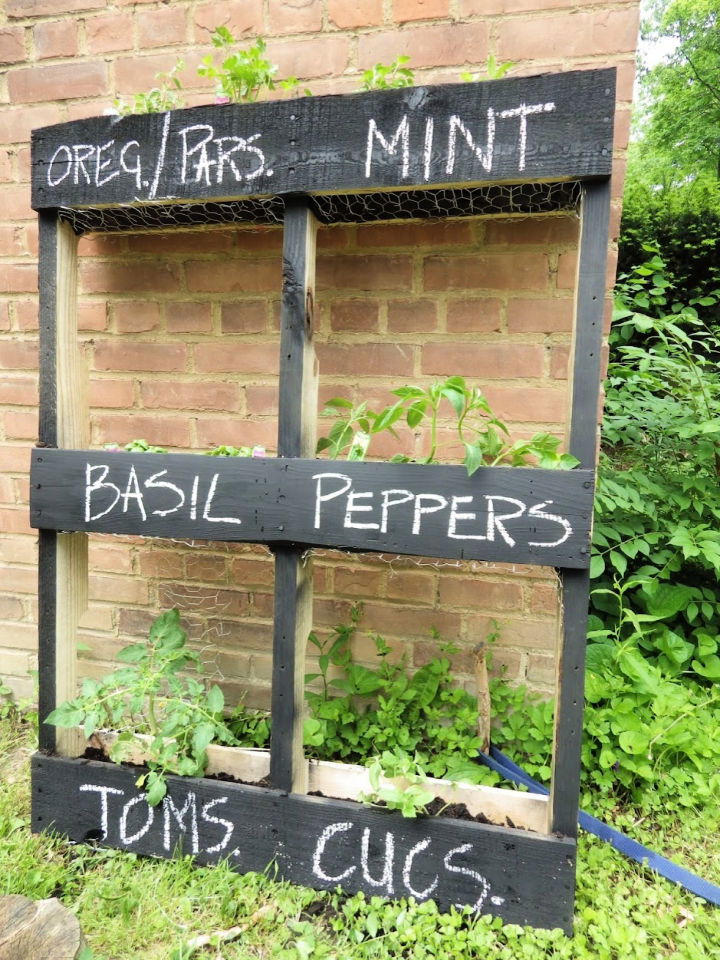 OREG./PARS. MINT
BASIL PEPPERS
TOMS. CUCS.